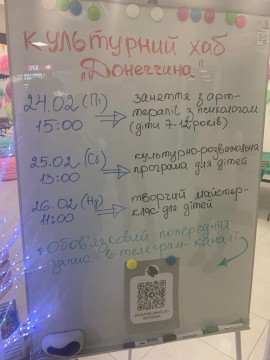 КУЛЬТУРНИЙ ХАБ
„Донеччина"
24.02 (Пт)
15:00
заняття з арт-
терапії з психологом
(діти 7-12 років)
25.02 (Сб)
13:00
культурно-розважальна
програма для дітей
26.02 (Нд)
11:00
творчий майстер-
клас для дітей
* Обов'язковий попередній
запис в телеграм каналі: